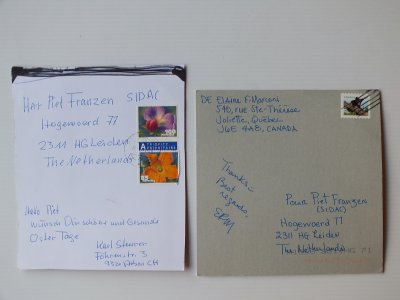 Herr Piet Franzen SIDAC
Hogewoerd 77
2311 HG Leiden
The Netherlands
100
A PRIORITY
PRIORITAIRE
85
Hallo Piet
wünsch Dir schöne und Gesunde
Oster Tage
Karl
Föhrenstr. 3
DE Elaine F. Marconi
540, rue Ste-Thérèse
Joliette, Québec
J6E 4A8, CANADA
Thanks –
Best
regards,
EFM
Pour Piet Franzen
(SIDAC)
Hogewoerd 77
2311 HG Leiden
The Netherlands